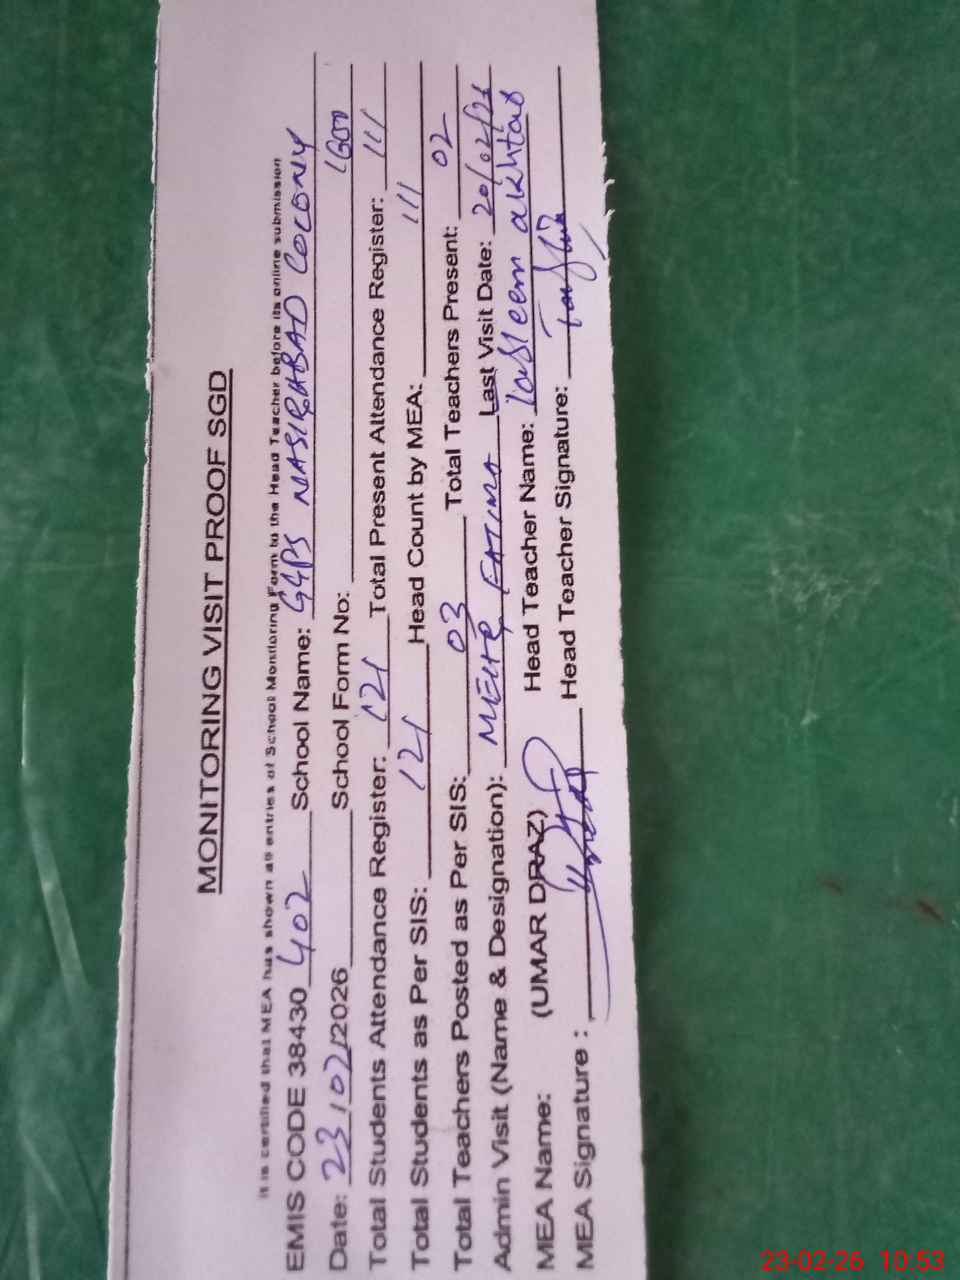 MONITORING VISIT PROOF SGD
It is certified that MEA has shown all entries of School Monitoring Form to the Head Teacher before its online submission
EMIS CODE 38430 402 School Name: G4PS NASIRABAD COLONEY
Date: 23/02/2026 School Form No:
Total Students Attendance Register: 121 Total Present Attendance Register: 111
Total Students as Per SIS: 121 Head Count by MEA: 111
Total Teachers Posted as Per SIS: 03 Total Teachers Present: 02
Admin Visit (Name & Designation): FATIMA Last Visit Date: 20/02/26
MEA Name: (UMAR DRAZ) Head Teacher Name: Tasleem akhtar
MEA Signature : Head Teacher Signature:
23-02-26 10:53